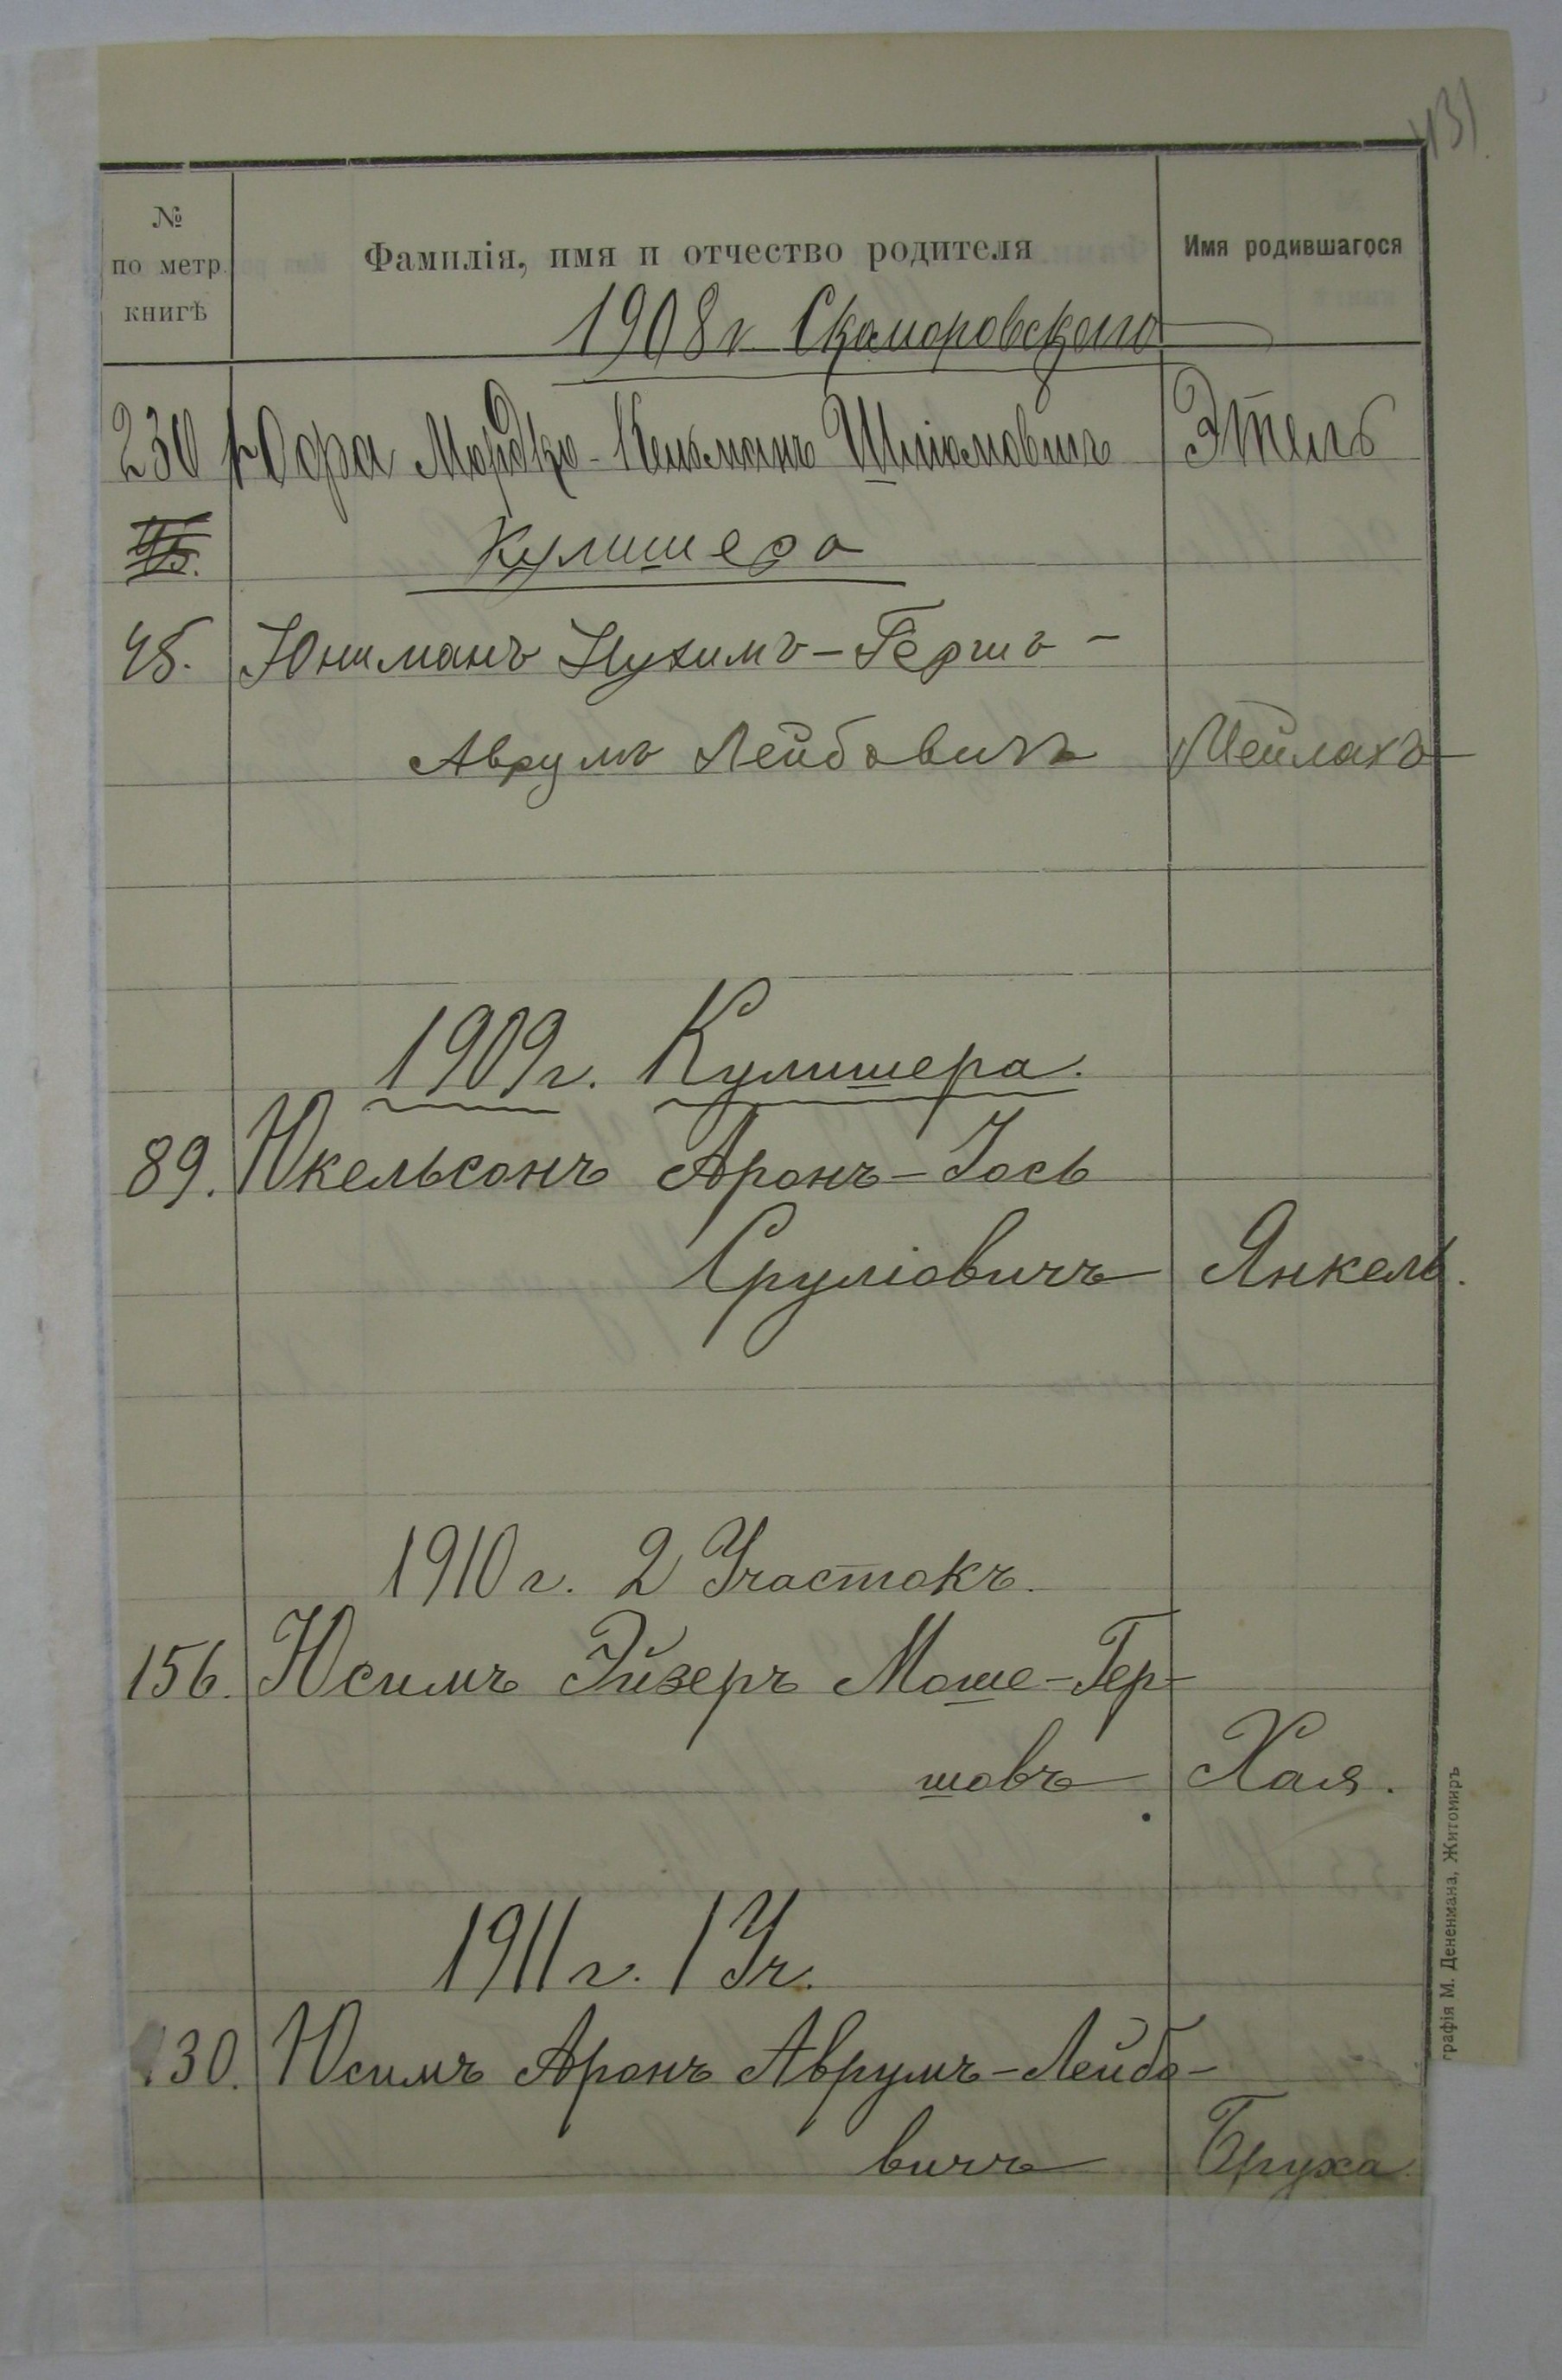 131
№
по метр.
книгѣ
Фамилія, имя и отчество родителя
Имя родившагося
1908 г. Скоморовскаго
230 Юфа Мордко-Кельманъ Шліомовичъ Этель
Кулишера
45. Юниманъ Нухимъ-Гершъ-
Аврумъ Лейбовичъ Мейлахъ
1909 г. Кулишера.
89. Юкельсонъ Аронъ-Іось
Сруліовичъ Янкель.
1910 г. 2 Участокъ.
156. Юсимъ Эйзеръ Моше-Гер-
шовъ Хая.
1911 г. 1 Уч.
130. Юсимъ Аронъ Аврумъ-Лейбо-
вичъ Бруха
графія М. Дененмана, Житомиръ